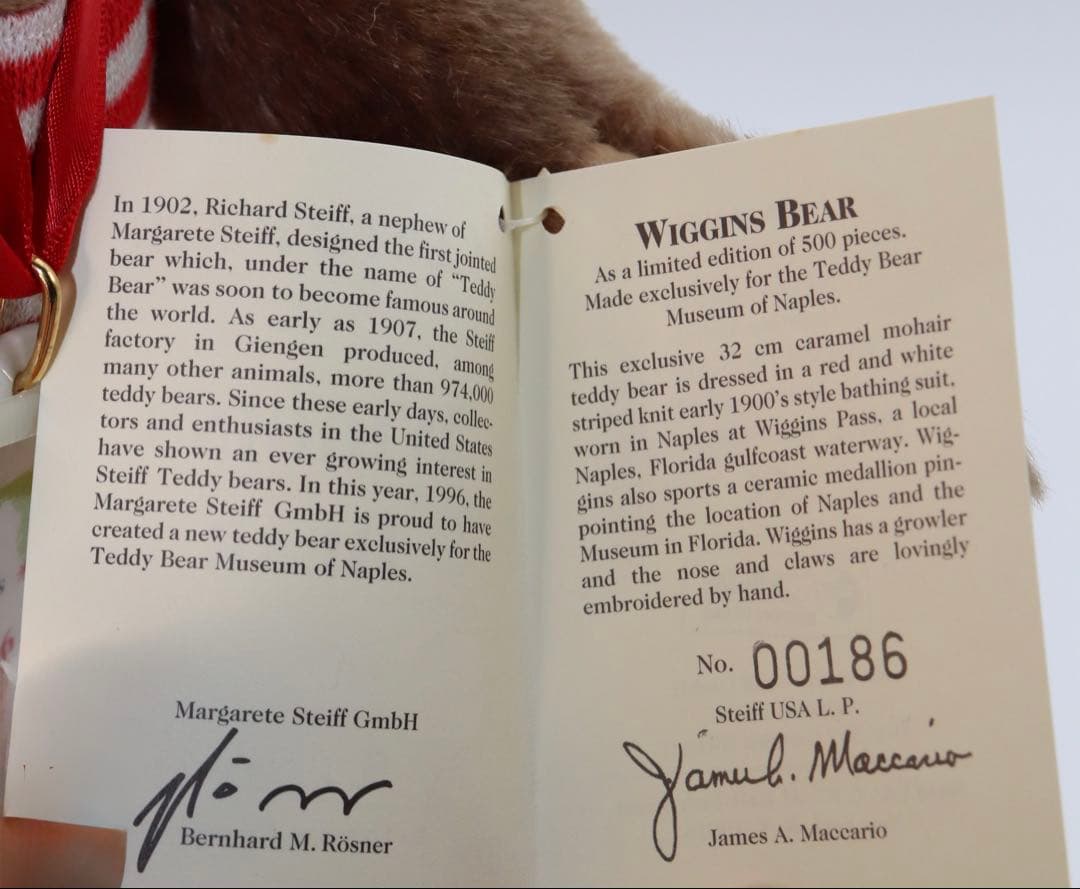 In 1902, Richard Steiff, a nephew of
Margarete Steiff, designed the first jointed
bear which, under the name of “Teddy
Bear” was soon to become famous around
the world. As early as 1907, the Steiff
factory in Giengen produced, among
many other animals, more than 974,000
teddy bears. Since these early days, collec-
tors and enthusiasts in the United States
have shown an ever growing interest in
Steiff Teddy bears. In this year, 1996, the
Margarete Steiff GmbH is proud to have
created a new teddy bear exclusively for the
Teddy Bear Museum of Naples.
Margarete Steiff GmbH
Bernhard M. Rösner
WIGGINS BEAR
As a limited edition of 500 pieces.
Made exclusively for the Teddy Bear
Museum of Naples.
This exclusive 32 cm caramel mohair
teddy bear is dressed in a red and white
striped knit early 1900’s style bathing suit,
worn in Naples at Wiggins Pass, a local
Naples, Florida gulfcoast waterway. Wig-
gins also sports a ceramic medallion pin-
pointing the location of Naples and the
Museum in Florida. Wiggins has a growler
and the nose and claws are lovingly
embroidered by hand.
No. 00186
Steiff USA L. P.
James A. Maccario
James A. Maccario